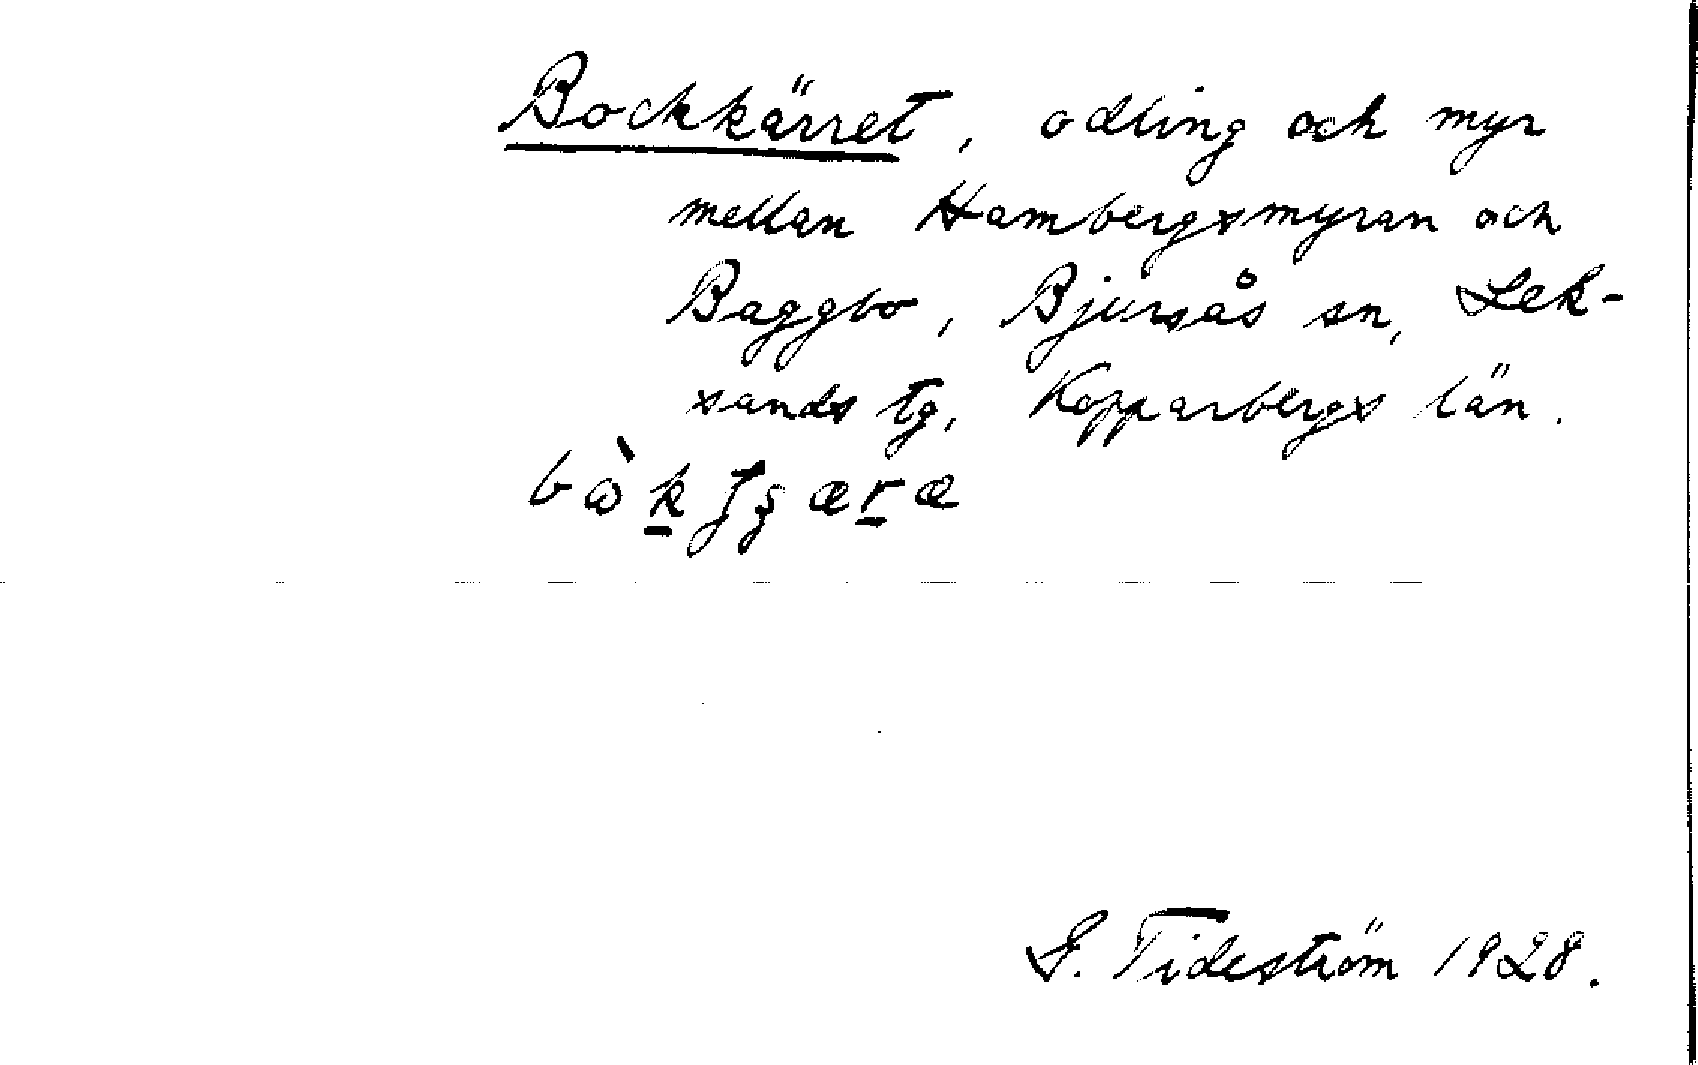 Bockkärret, odling och myr
mellan Hambergsmyran och
Baggbo, Bjursås sn, Lek-
sands tg, Kopparbergs län.
G. Tideström 1928.